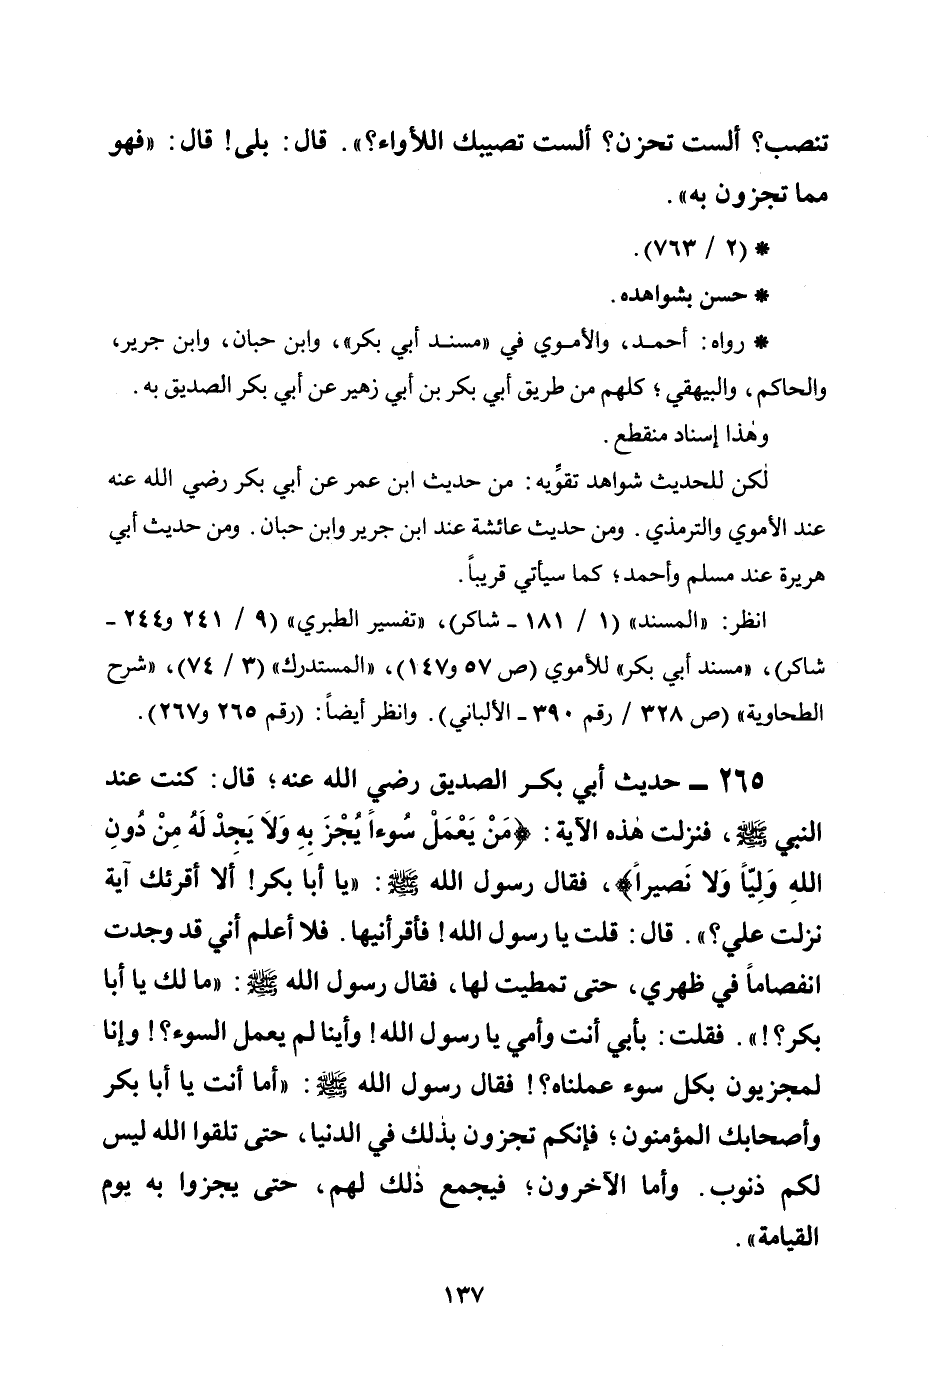 تنصب؟ ألست تحزن؟ ألست تصيبك اللأواء؟». قال: بلى! قال: «فهو
مما تجزون به».
* (٢ / ٧٦٣).
* حسن بشواهده.
* رواه: أحمد، والأموي في «مسند أبي بكر»، وابن حبان، وابن جرير،
والحاكم، والبيهقي؛ كلهم من طريق أبي بكر بن أبي زهير عن أبي بكر الصديق به.
وهٰذا إسناد منقطع.
لٰكن للحديث شواهد تقوِّيه: من حديث ابن عمر عن أبي بكر رضي الله عنه
عند الأموي والترمذي. ومن حديث عائشة عند ابن جرير وابن حبان. ومن حديث أبي
هريرة عند مسلم وأحمد؛ كما سيأتي قريباً.
انظر: «المسند» (١ / ١٨١ ـ شاكر)، «تفسير الطبري» (٩ / ٢٤١ و٢٤٤ ـ
شاكر)، «مسند أبي بكر» للأموي (ص ٥٧ و١٤٧)، «المستدرك» (٣ / ٧٤)، «شرح
الطحاوية» (ص ٣٢٨ / رقم ٣٩٠ ـ الألباني). وانظر أيضاً: (رقم ٢٦٥ و٢٦٧).
٢٦٥ ـ حديث أبي بكر الصديق رضي الله عنه؛ قال: كنت عند
النبي ﷺ، فنزلت هٰذه الآية: ﴿مَنْ يَعْمَلْ سُوءاً يُجْزَ بِهِ وَلَا يَجِدْ لَهُ مِنْ دُونِ
اللهِ وَلِيّاً وَلا نَصيراً﴾، فقال رسول الله ﷺ: «يا أبا بكر! ألا أقرئك آية
نزلت علي؟». قال: قلت يا رسول الله! فأقرأنيها. فلا أعلم أني قد وجدت
انفصاماً في ظهري، حتى تمطيت لها، فقال رسول الله ﷺ: «ما لك يا أبا
بكر؟!». فقلت: بأبي أنت وأمي يا رسول الله! وأينا لم يعمل السوء؟! وإنا
لمجزيون بكل سوء عملناه؟! فقال رسول الله ﷺ: «أما أنت يا أبا بكر
وأصحابك المؤمنون؛ فإنكم تجزون بذٰلك في الدنيا، حتى تلقوا الله ليس
لكم ذنوب. وأما الآخرون؛ فيجمع ذٰلك لهم، حتى يجزوا به يوم
القيامة».
١٣٧